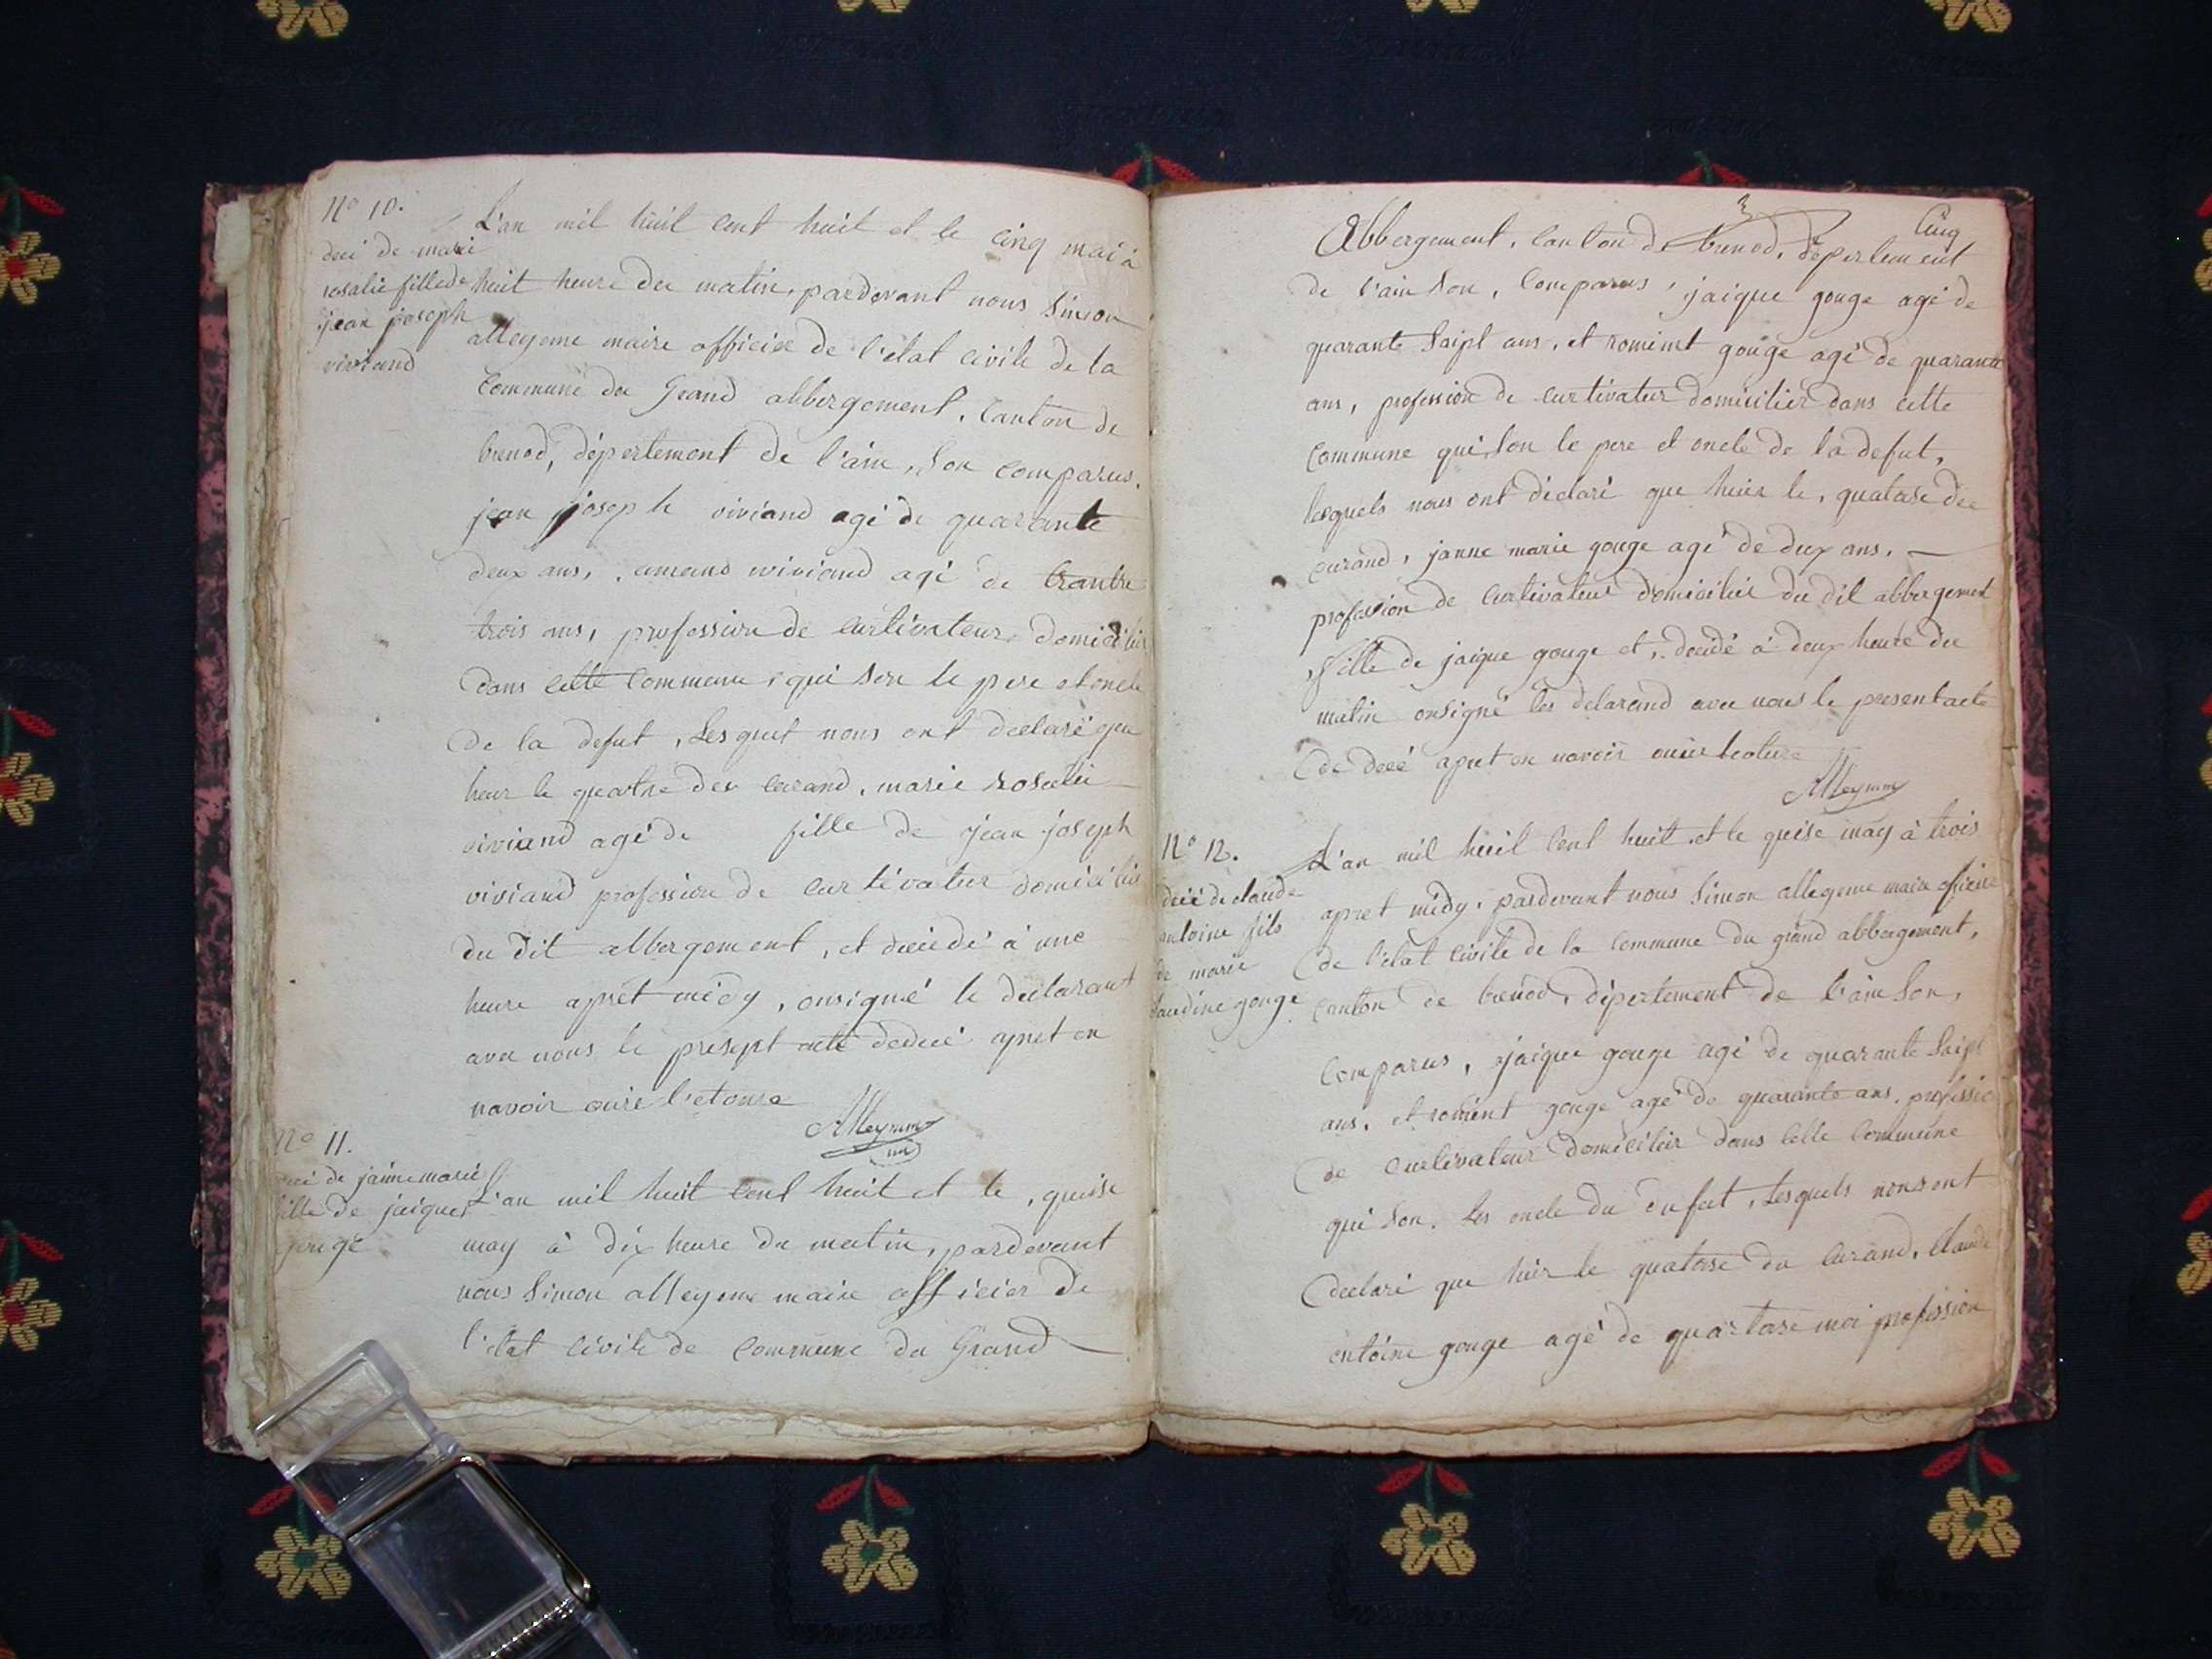 N° 10.
deci de marie
rosalie fille de
jean joseph
viviand
L'an mil huit cent huit et le cinq mai à
huit heure du matin, pardevant nous Simon
allegeme maire officier de l'état civile de la
Commune du Grand abbergement, Canton de
brenod, dépertement de l'ain, son comparus,
jean joseph viviand agé de quarante
deux ans, amand viviand agé de trantre
trois ans, profession de curtivateur domicilier
dans cette Commune, qui son le pere et oncle
de la defut, Les quet nous ont declaré que
heur le quatre deu curand, marie rosalie
viviand agé de fille de jean joseph
viviand profession de curtivatur domicilier
du dit albergement, et decidé à une
heure apret midy, onsigné le declarant
avec nous le presept acte dedecé apret en
navoir ouire l'etoure
Alleymme
N° 11.
deci de jaine marie
fille de jaique
gouge
L'an mil huit cent huit et le, quise
may à dix heure du matin, pardevant
nous Simon alleyeme maire officier de
l'état civile de Commune du Grand
Cinq
Abbergement, Canton de brenod, dépertement
de l'ain son, Comparus, jaique gouge agé de
quarante Saipt ans, etromint gouge agé de quarante
ans, profession de curtivatur domicilier dans cette
Commune qui son le pere et oncle de la defut,
lesquels nous ont déclaré que heier le, quatase deu
curand, janne marie gouge agé de dux ans,
profession de Curtivateur domicilier du dit abbergement
fille de jaique gouge et, decidé à deux heure du
matin onsigné les delarand avec nous le present acte
de decé apret en navoir ouire leoture
Alleymme
N° 12.
decé de claude
antoine fils
de marie
claudine gouge
L'an mil huit Cent huit et le quise may à trois
apret midy, pardevant nous Simon allegeme maire oficier
de l'état Civile de la Commune du grand abbergement,
canton de brenod, dépertement de l'ain Son,
Comparus, jaique gouge agé de quarante Saipt
ans, et romint gouge agé de quarante ans, professio
de Curtivateur domicilier dans Cette Commune
qui Son, Les oncle du Dufut, Lesquels nous ont
declaré que hier le quatorse du Curand, Claude
antoine gouge agé de quartase moi profession